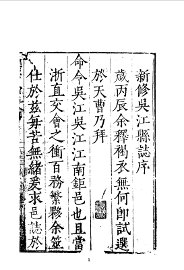 新修吳江縣誌序
歲丙辰余釋褐衣無何即試選
於天曹乃拜
命令吳江吳江江南鉅邑也且當
浙直交會之衝百務繁夥余筮
仕於茲每苦無緒爰求邑誌於